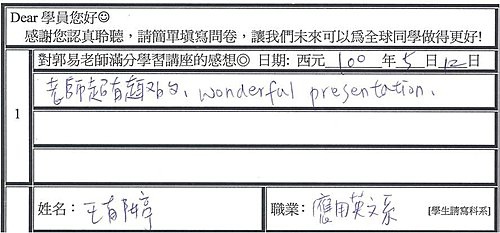 Dear 學員您好☺
感謝您認真聆聽，請簡單填寫問卷，讓我們未來可以為全球同學做得更好!
對郭易老師滿分學習講座的感想◎ 日期: 西元 100 年 5 日 12 日
1
老師超有趣的, wonderful presentation.
姓名： 王
職業： 應用英文系 [學生請寫科系]